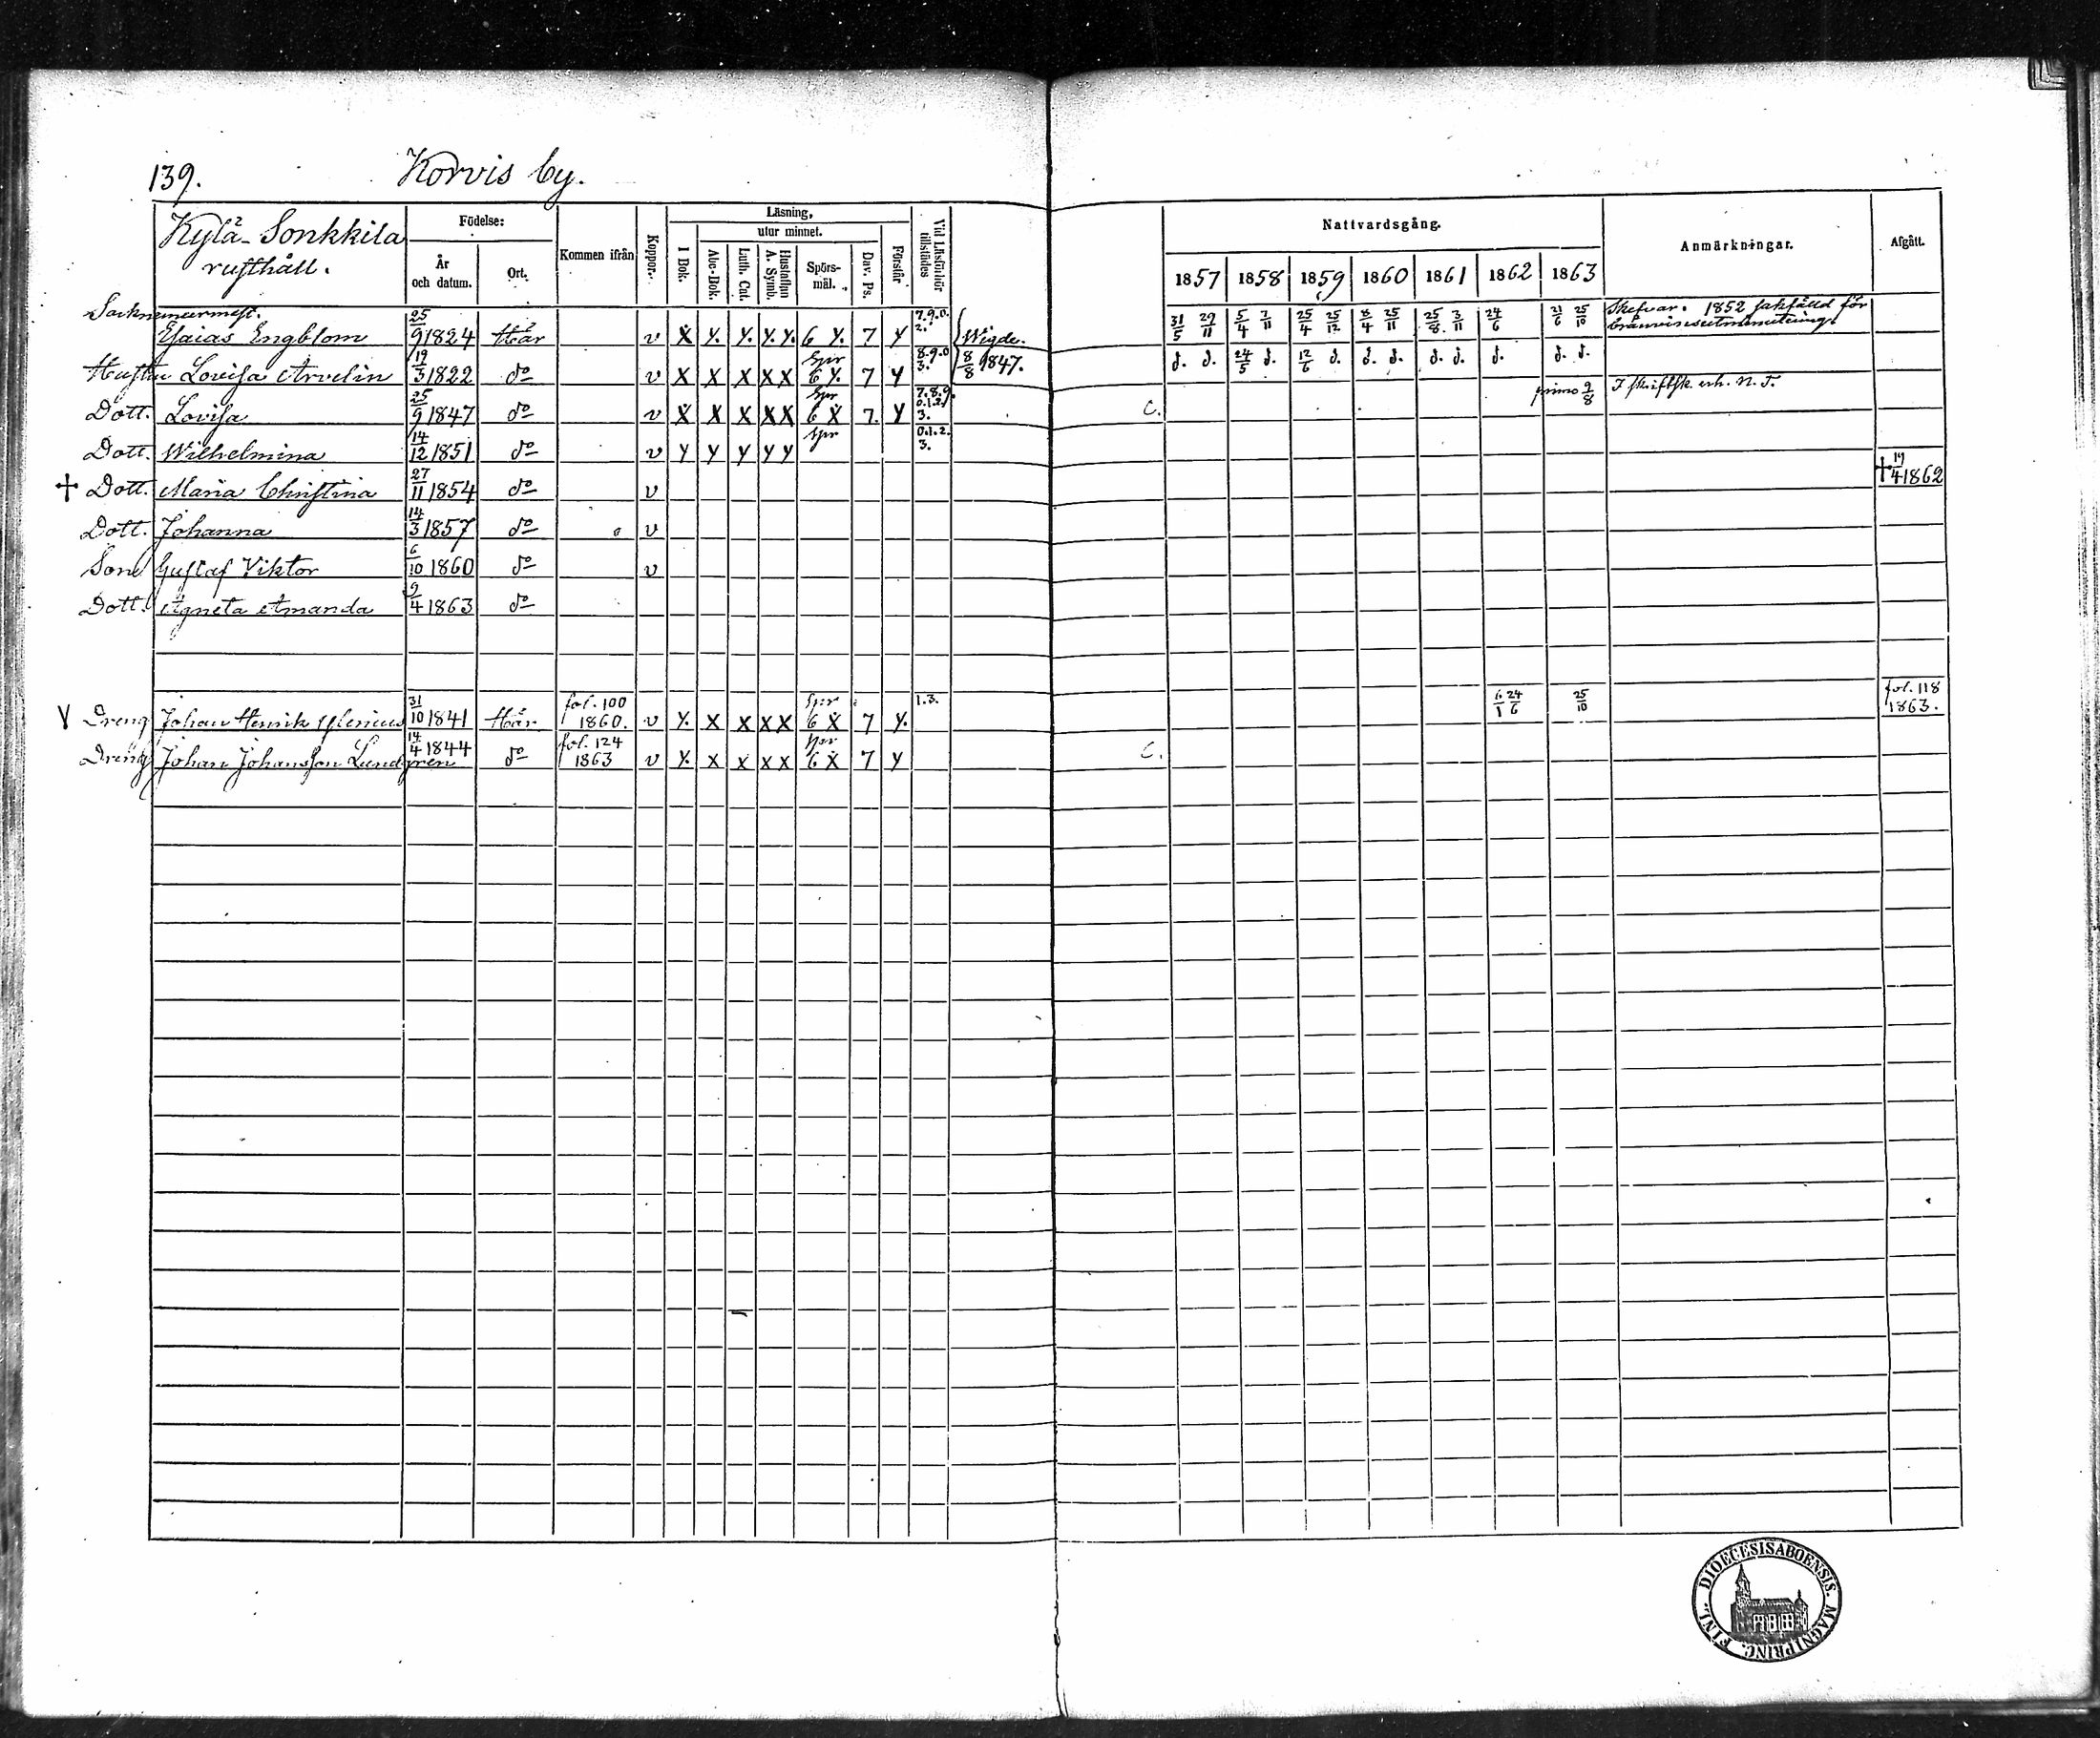 139. Korvis by.
Kylä-Sonkkila
rusthåll.
Födelse:
År
och datum.
Ort.
Kommen ifrån
Koppor.
Läsning,
utur minnet.
I Bok.
Abc-Bok.
Luth. Cat.
Hustaflan
A. Symb.
Spörs-
mål.
Dav. Ps.
Förstår
Vid Läsförhör
tillstädes
Nattvardsgång.
1857 1858 1859 1860 1861 1862 1863
Anmärkningar.
Afgått.
Esaias Engblom 25/9 1824 Här v X Y. Y. Y. Y. 6 Y. 7 Y 7.9.0. 2. Wigde. 31/5 29/11 5/4 7/11 25/4 25/12 8/4 25/11 25/8 3/11 24/6 21/6 25/10 1852 sakfälld för
Hustru Lovisa Arvelin 19/3 1822 do v X X X X X Spr 6 Y. 7 Y 8.9.0 3. 8/8 1847. d. d. 24/5 d. 12/6 d. d. d. d. d. d. d. d.
Dott. Lovisa 25/9 1847 do v X X X X X Spr 6 X 7. Y 7.8.9. 0.1.2. 3. C. primo 9/8 I skriftsk. erh. N. T.
Dott. Wilhelmina 14/12 1851 do v Y Y Y Y Y Spr 0.1.2. 3.
+ Dott. Maria Christina 27/11 1854 do v + 19/4 1862
Dott. Johanna 14/3 1857 do v
Son Gustaf Viktor 6/10 1860 do v
Dott. Agneta Amanda 9/4 1863 do
V Dreng Johan Henrik 31/10 1841 Här fol. 100 1860. v Y. X X X X Spr 6 X 7 Y. 1.3. 6/1 24/6 25/10 fol. 118 1863.
Dreng Johan Johansson Lundgren 14/4 1844 do fol. 124 1863 v Y. X X X X Spr 6 X 7 Y C.
DIOECESIS ABOENSIS. MAGNI PRINC. FINL.